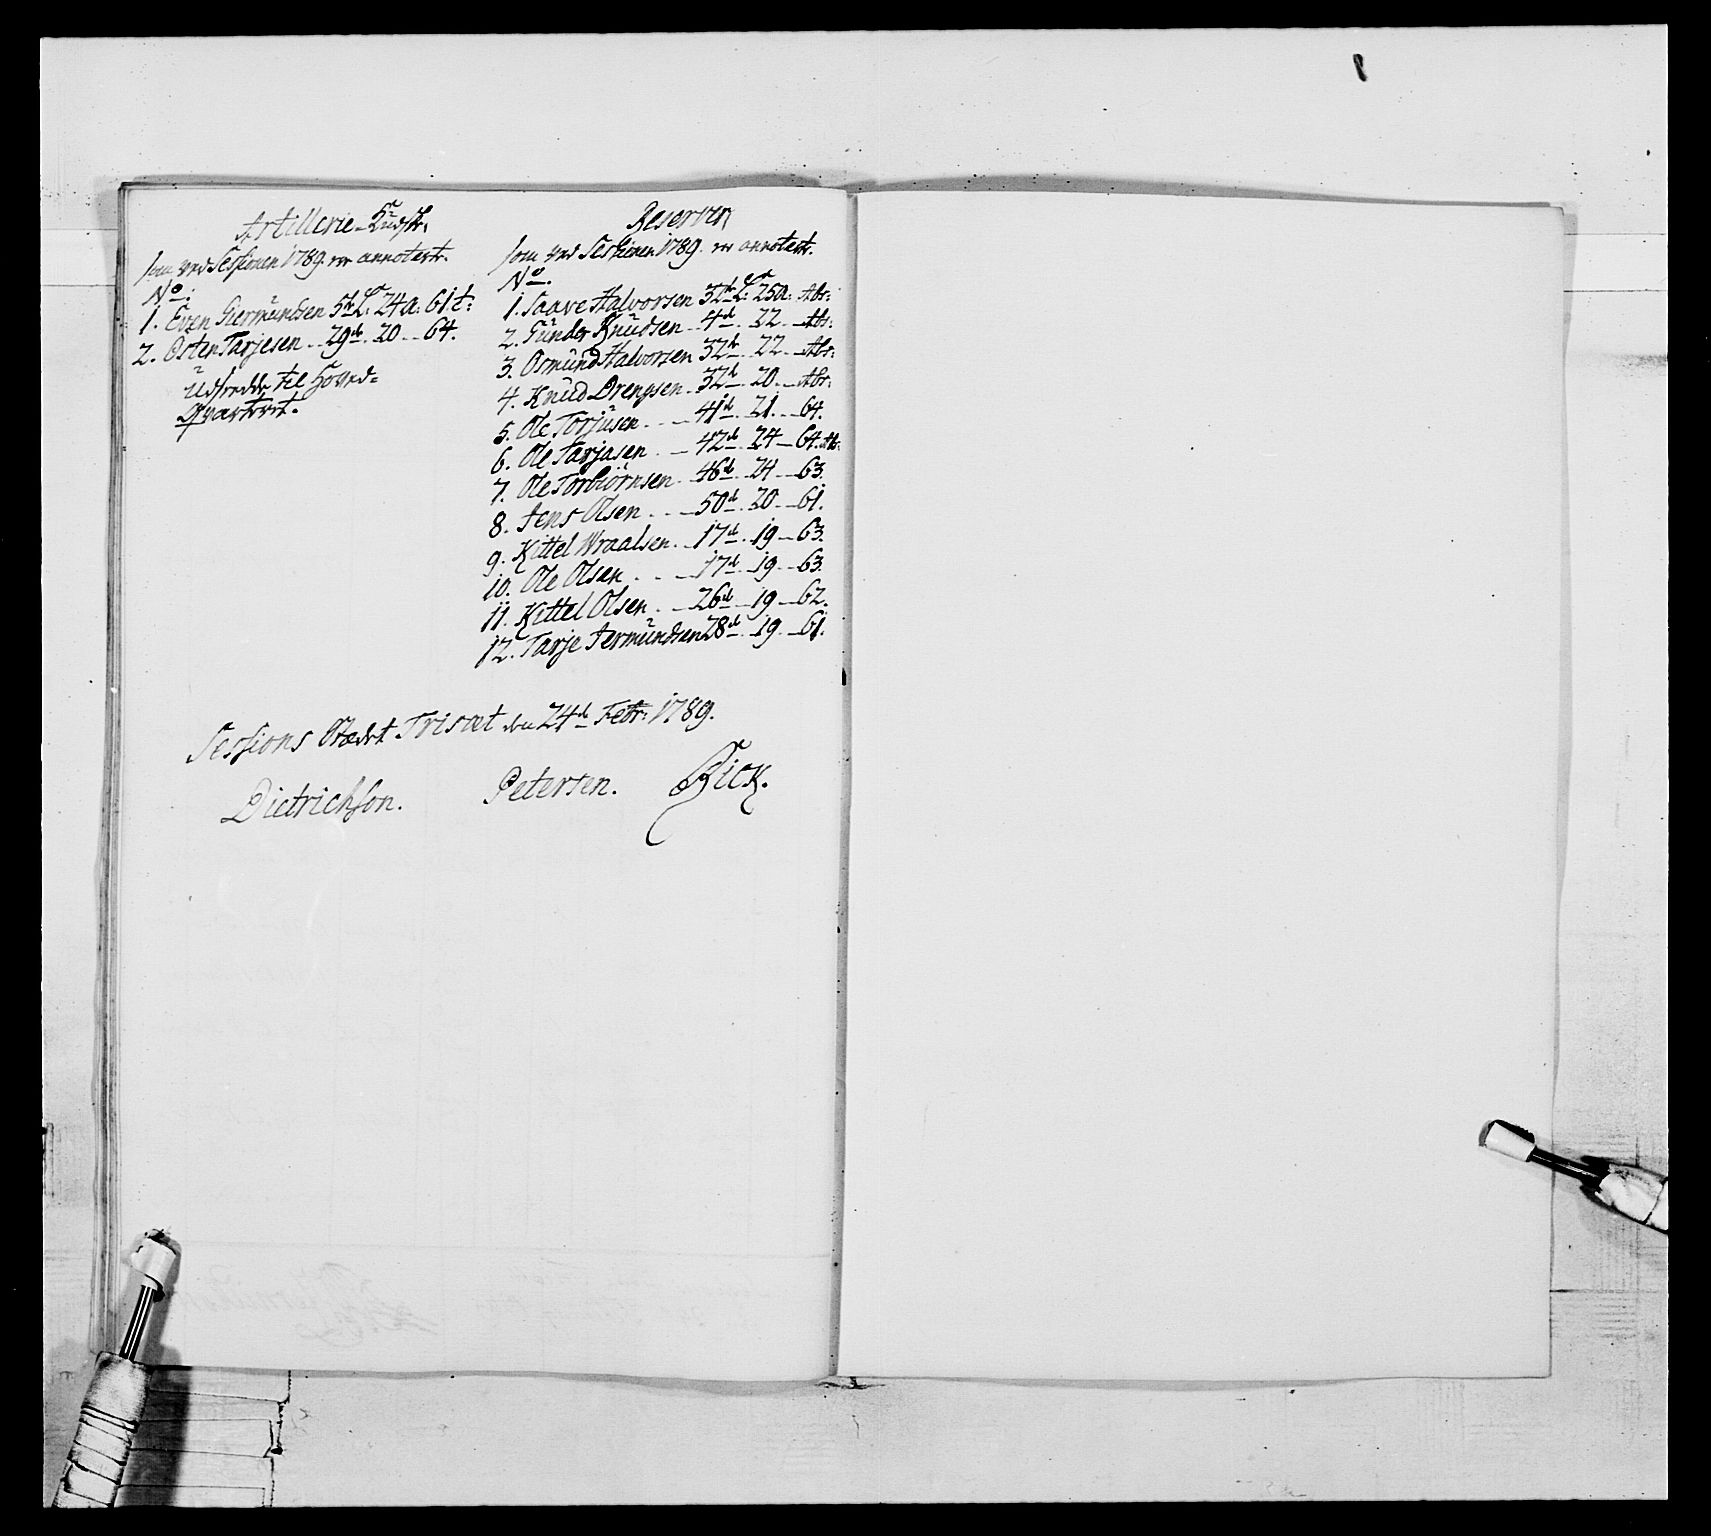 Artillerie-Kudsk.
som ved Sessionen 1789. er annoteret.
No:
1. Even Giermundsen 5te L: 24 a: 61 t:
2. Osten Tarjesen . . 29de . 20 . . 64.
Udsendde til Hoved=
Qvarteret.
Reserver
som ved Sessionen 1789. er annoteret.
No.
1. Saave Halvorsen 32te L: 25 a: Abs:
2. Gunder Knudsen . . 4de . 22 . — Abs:
3. Osmund Halvorsen 32te . 22 . — Abs:
4. Knud Drengsen . 32te . 20 . — Abs:
5. Ole Torjusen . . — 41de . 21 . . 64.
6. Ole Tarjasen . — 42de . 24 — 64. Abs:
7. Ole Torbiörnsen . 46de . 24 . — 63.
8. Jens Olsen . . . — 50de . 20 . — 61.
9. Kittel Wraalsen . — 17de . 19 — 63.
10. Ole Olsen . . . — 17de . 19 . — 63.
11. Kittel Olsen . . — 26de — 19 — 62.
12. Tarje Jermundsen 28de . 19 . — 61.
Sessions Stædet Trisæt den 24de Febr: 1789.
Dietrichson. Petersen. Bick.